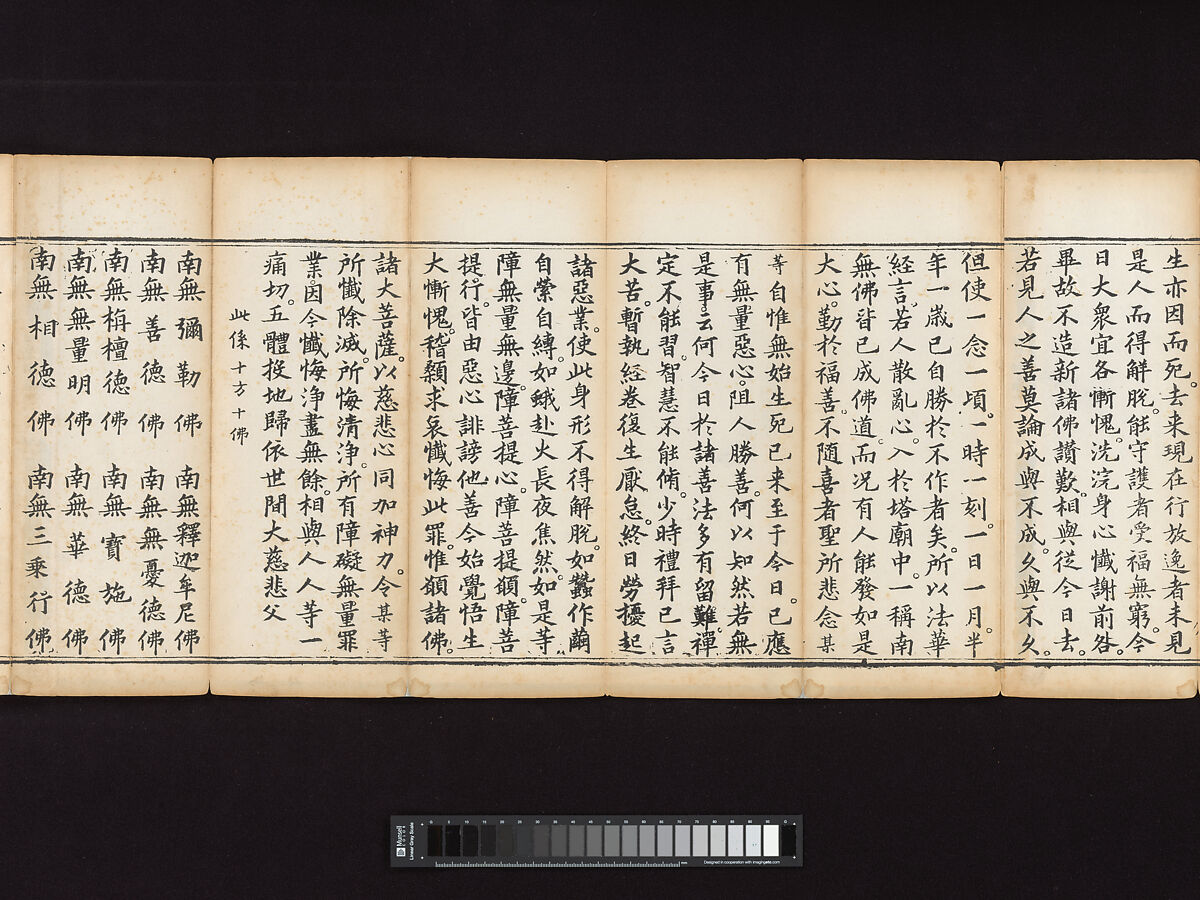 生亦因而死。去来現在行放逸者未見
是人而得解脫。能守護者受福無窮。今
日大衆宜各慚愧。洗浣身心懺謝前咎。
畢故不造新諸佛讚歎。相與從今日去。
若見人之善莫論成與不成。久與不久。
但使一念一頃。一時一刻。一日一月。半
年一歲已自勝於不作者矣。所以法華
經言。若人散亂心。入於塔廟中。一稱南
無佛。皆已成佛道。而况有人能發如是
大心。勤於福善。不隨喜者聖所悲念某
等自惟無始生死已来至于今日。已應
有無量惡心。阻人勝善。何以知然。若無
是事。云何今日於諸善法多有留難。禪
定不能習。智慧不能脩。少時禮拜已言
大苦。暫執經卷復生厭怠。終日勞擾起
諸惡業。使此身形不得解脫。如蠶作繭
自縈自縛。如蛾赴火長夜焦然。如是等
障無量無邊。障菩提心。障菩提願。障菩
提行。皆由惡心誹謗他善今始覺悟生
大慚愧。稽顙求哀懺悔此罪。惟願諸佛。
諸大菩薩。以慈悲心同加神力。令某等
所懺除滅。所悔清淨。所有障礙無量罪
業。因今懺悔淨盡無餘。相與人人等一
痛切。五體投地歸依世間大慈悲父
此係十方十佛
南無彌勒佛　南無釋迦牟尼佛
南無善德佛　南無無憂德佛
南無栴檀德佛　南無寶施佛
南無無量明佛　南無華德佛
南無相德佛　南無三乘行佛
Munsell
Linear Gray Scale
Designed in cooperation with imagingetc.com